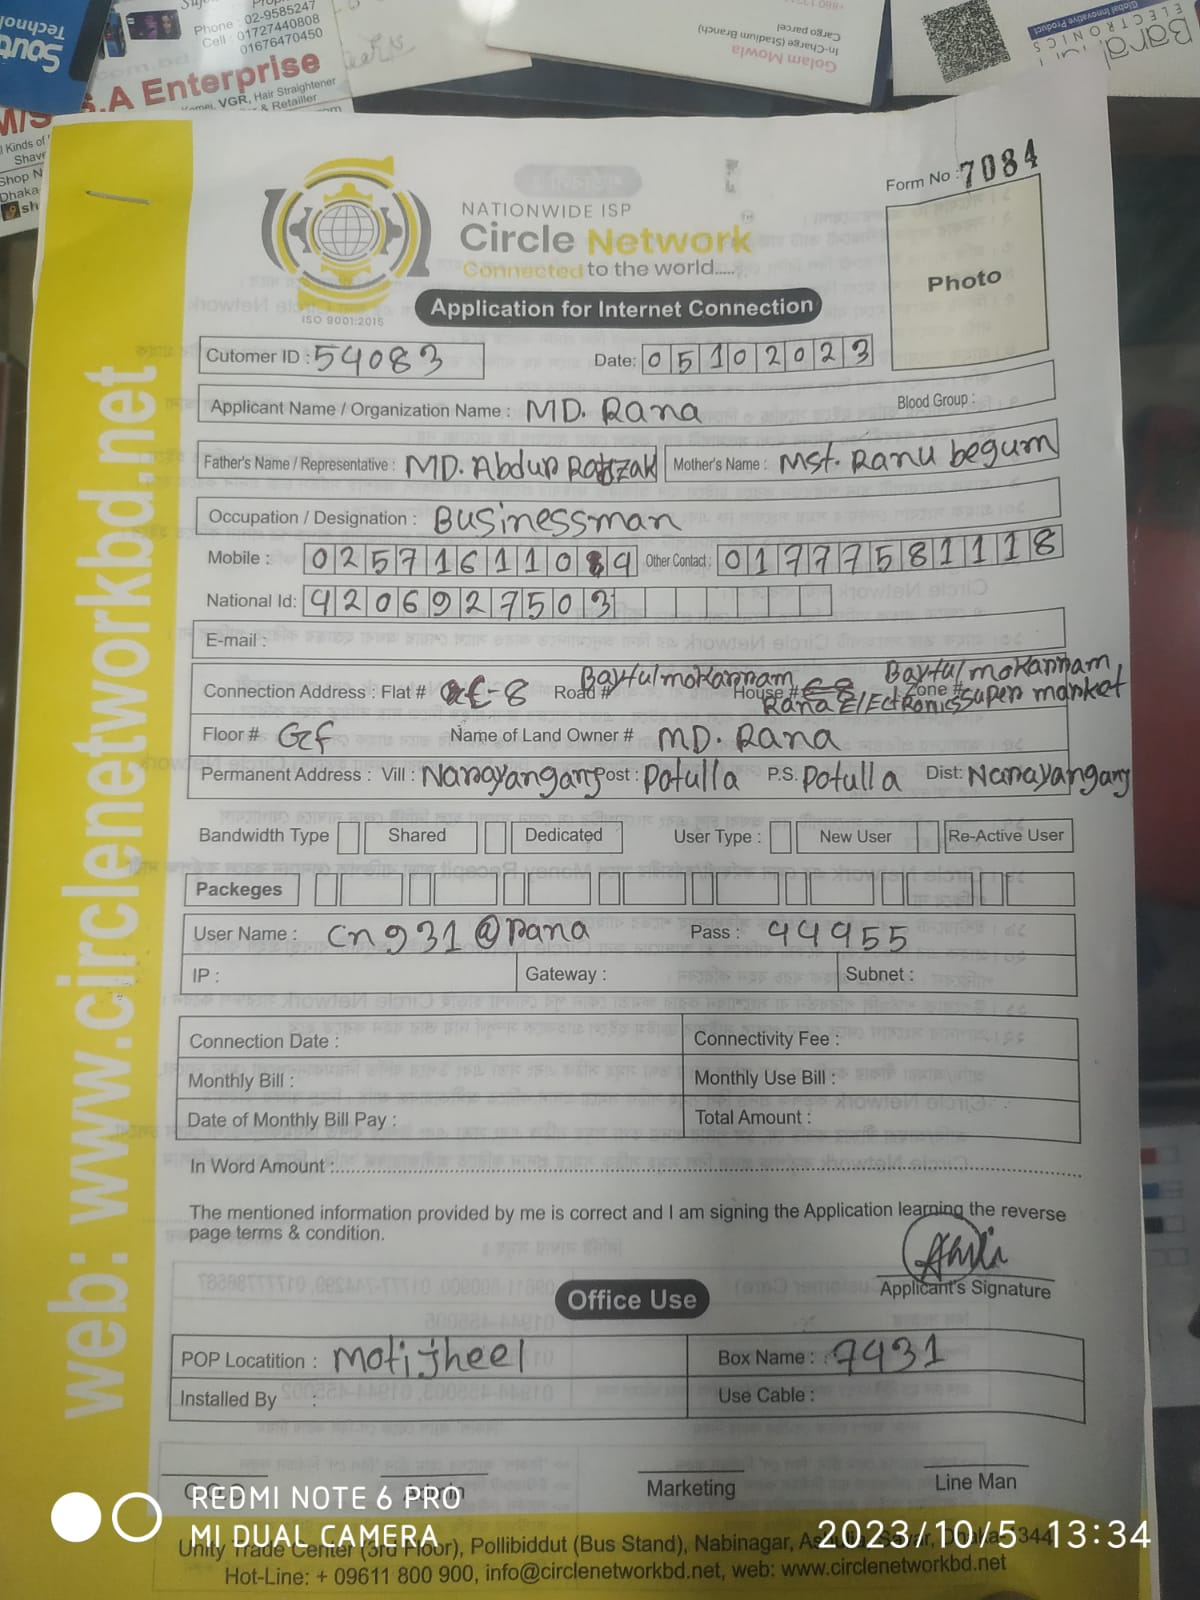 Phone : 02-9585247
Cell : 01727440808
01676470450
S.A Enterprise
VGR, Hair Straightener
& Retailler
M/S
Kinds of
Shop N
Dhaka
Golam Mowla
In-Charge (Stadium Branch)
Cargo parcel
ELECTRONICS
Global Innovative Product
Form No : 7084
NATIONWIDE ISP
Circle Network
Connected to the world.....
ISO 9001:2015
Photo
Application for Internet Connection
Cutomer ID : 54083 Date: 05102023
Applicant Name / Organization Name : MD. Rana Blood Group :
Father's Name / Representative : MD. Abdur Razzak Mother's Name : Mst. Ranu begum
Occupation / Designation : Businessman
Mobile : 02571611084 Other Contact : 01777581118
National Id: 4206927503
E-mail :
Baytulmokarram Baytulmokarram,
Connection Address : Flat # E-8 Road # House # Zone #
Rana Electronics super market
Floor # GF Name of Land Owner # MD. Rana
Permanent Address : Vill : Narayangang Post : Potulla P.S. Potulla Dist: Narayangang
Bandwidth Type Shared Dedicated User Type : New User Re-Active User
Packeges
User Name : cn931@rana Pass : 44955
IP : Gateway : Subnet :
Connection Date : Connectivity Fee :
Monthly Bill : Monthly Use Bill :
Date of Monthly Bill Pay : Total Amount :
In Word Amount :
The mentioned information provided by me is correct and I am signing the Application learning the reverse
page terms & condition.
Applicant's Signature
Office Use
POP Locatition : motijheel Box Name : 7431
Installed By : Use Cable :
Marketing Line Man
REDMI NOTE 6 PRO
MI DUAL CAMERA
2023/10/5 13:34
Unity Trade Center (3rd Floor), Pollibiddut (Bus Stand), Nabinagar, Ashulia, Savar, Dhaka-1344
Hot-Line: + 09611 800 900, info@circlenetworkbd.net, web: www.circlenetworkbd.net
web: www.circlenetworkbd.net